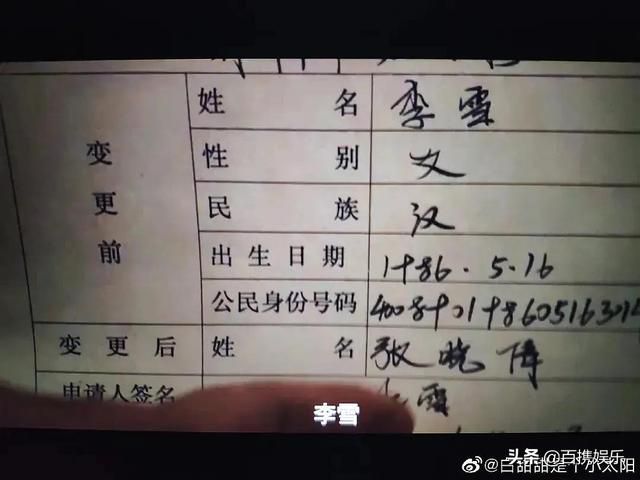 姓名 李雪
变更前
性别 女
民族 汉
出生日期 1986.5.16
公民身份号码
变更后 姓名 张晓
申请人签名 李雪
李雪
头条 @百携娱乐
@白甜甜是个小太阳